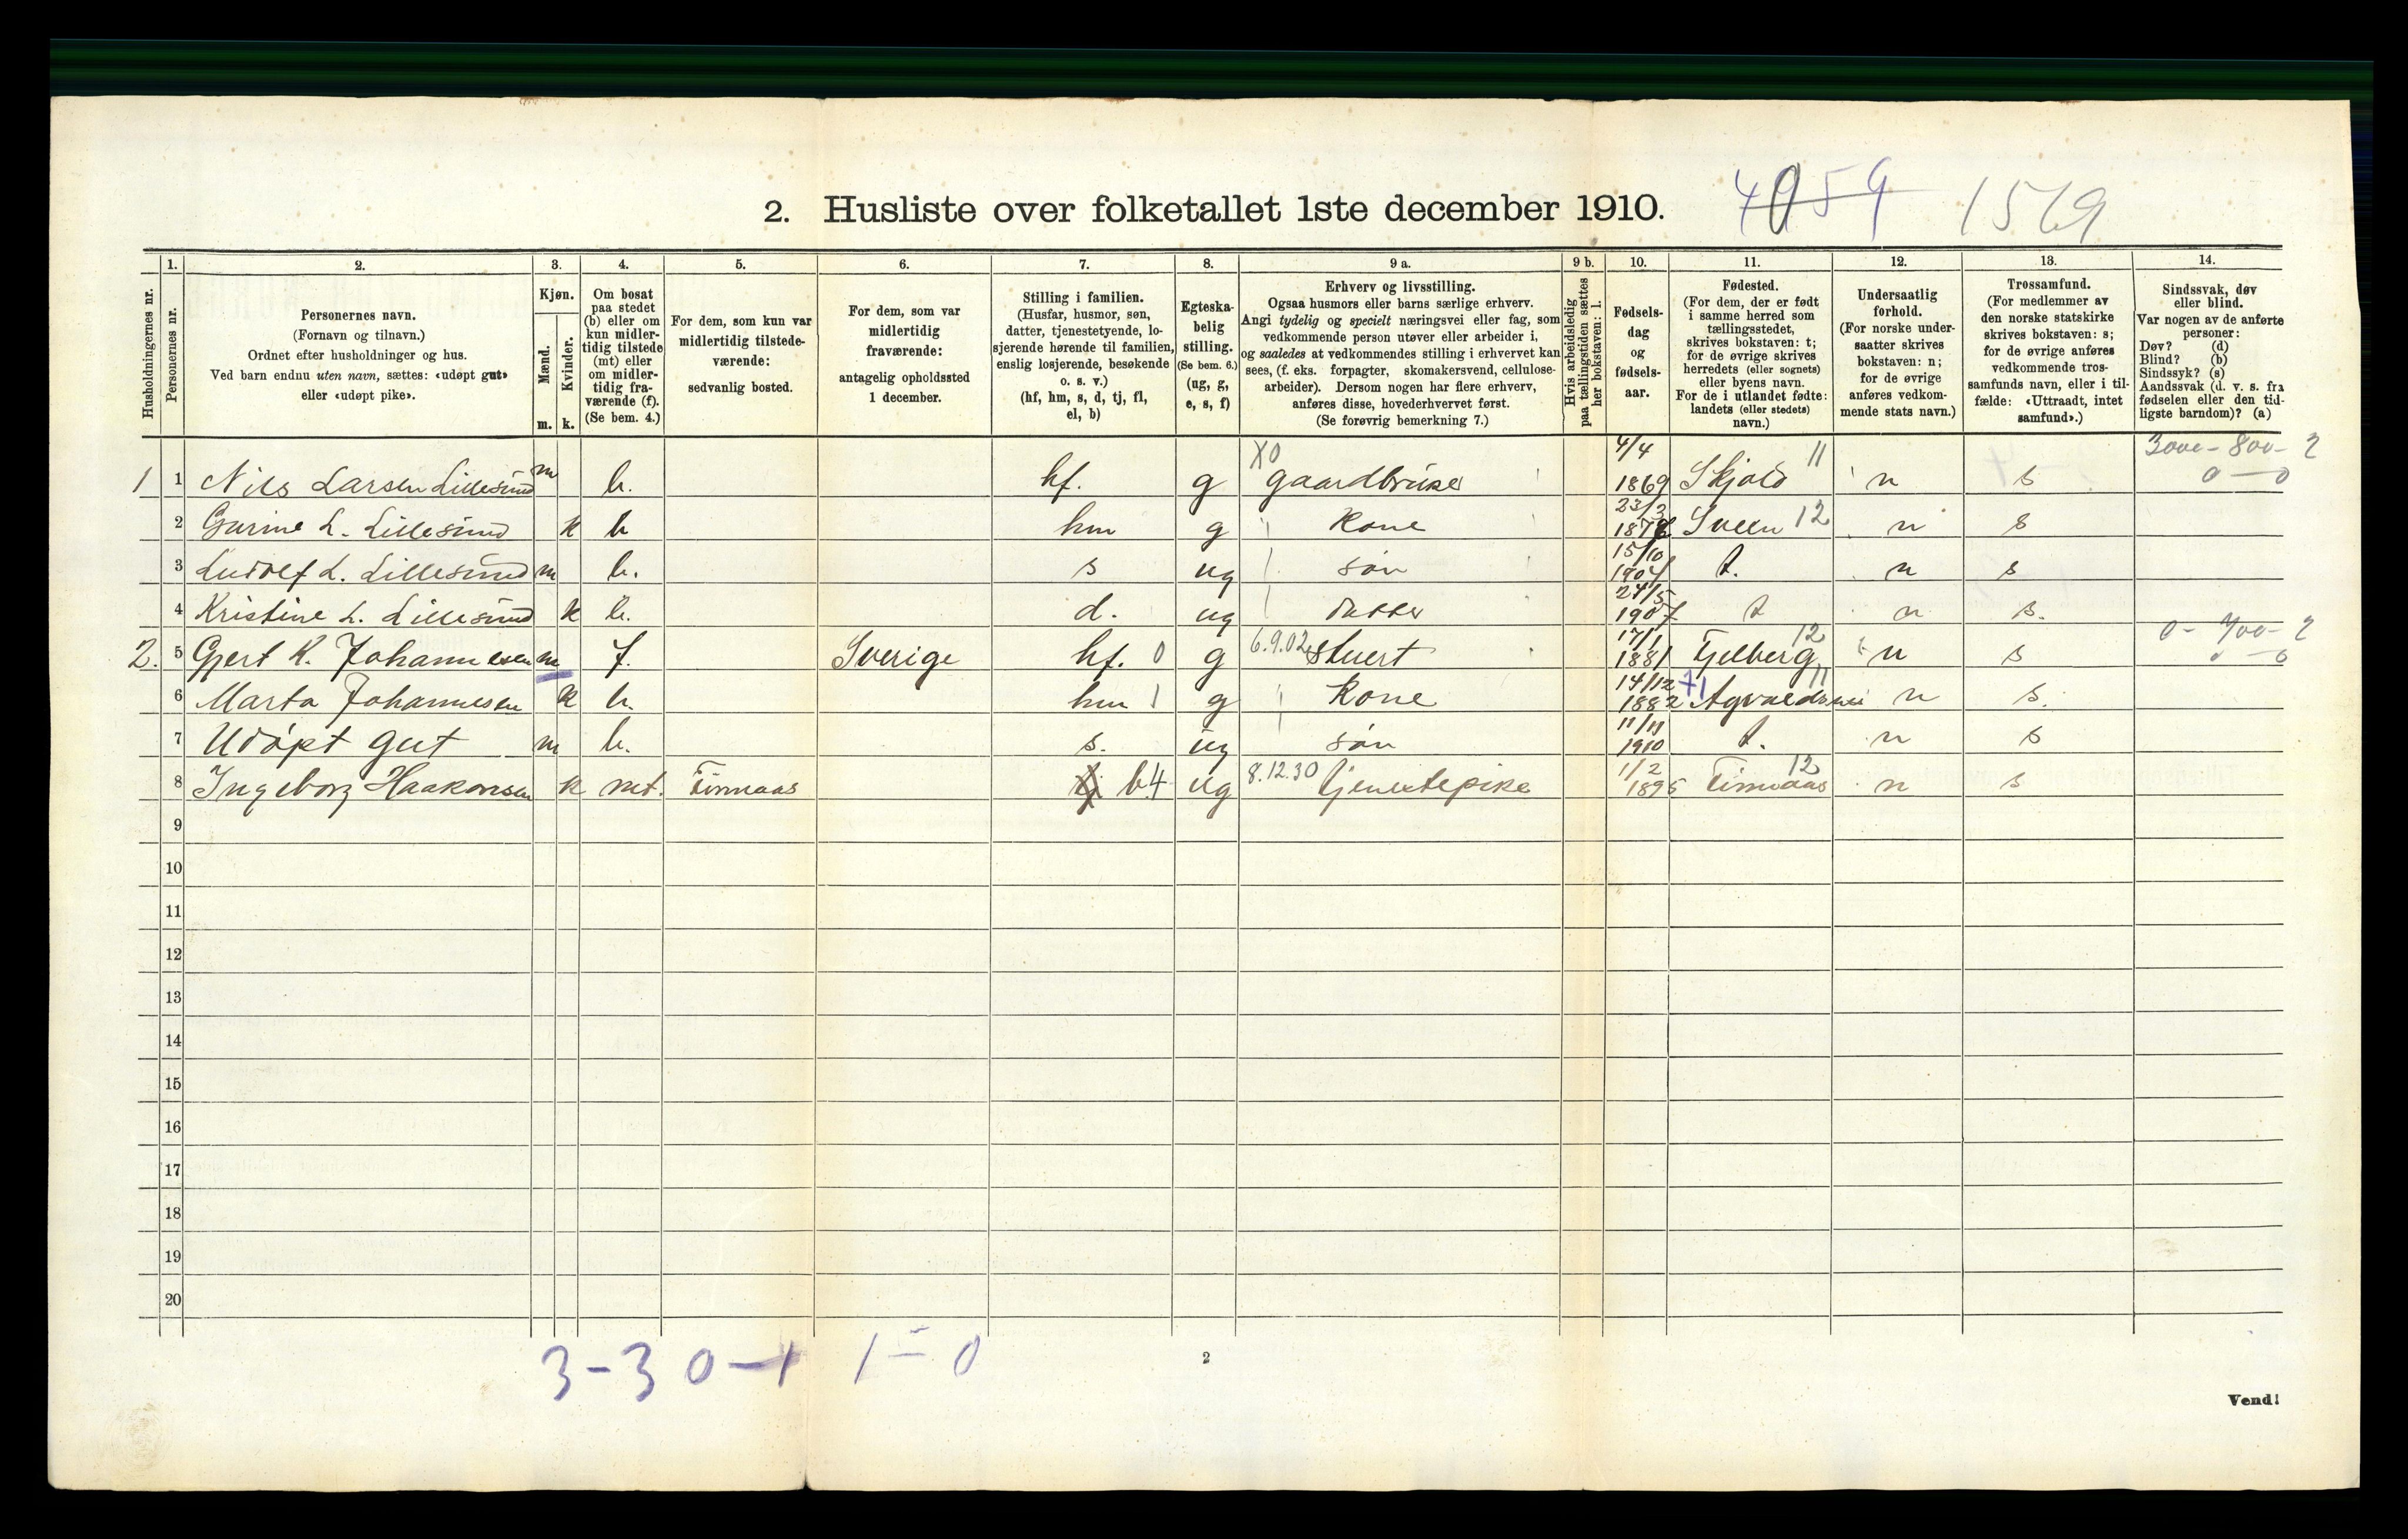 2. Husliste over folketallet 1ste december 1910. 4059 1569
Husholdningernes nr.
1. Personernes nr.
2. Personernes navn.
(Fornavn og tilnavn.)
Ordnet efter husholdninger og hus.
Ved barn endnu uten navn, sættes: «udøpt gut»
eller «udøpt pike».
3. Kjøn.
Mænd. Kvinder.
m. k.
4. Om bosat
paa stedet
(b) eller om
kun midler-
tidig tilstede
(mt) eller
om midler-
tidig fra-
værende (f).
(Se bem. 4.)
5. For dem, som kun var
midlertidig tilstede-
værende:
sedvanlig bosted.
6. For dem, som var
midlertidig
fraværende:
antagelig opholdssted
1 december.
7. Stilling i familien.
(Husfar, husmor, søn,
datter, tjenestetyende, lo-
sjerende hørende til familien,
enslig losjerende, besøkende
o. s. v.)
(hf, hm, s, d, tj, fl,
el, b)
8. Egteska-
belig
stilling.
(Se bem. 6.)
(ug, g,
e, s, f)
9 a. Erhverv og livsstilling.
Ogsaa husmors eller barns særlige erhverv.
Angi tydelig og specielt næringsvei eller fag, som
vedkommende person utøver eller arbeider i,
og saaledes at vedkommendes stilling i erhvervet kan
sees, (f. eks. forpagter, skomakersvend, cellulose-
arbeider). Dersom nogen har flere erhverv,
anføres disse, hovederhvervet først.
(Se forøvrig bemerkning 7.)
9 b. Hvis arbeidsledig
paa tællingstiden sættes
her bokstaven: l.
10. Fødsels-
dag
og
fødsels-
aar.
11. Fødested.
(For dem, der er født
i samme herred som
tællingsstedet,
skrives bokstaven: t;
for de øvrige skrives
herredets (eller sognets)
eller byens navn.
For de i utlandet fødte:
landets (eller stedets)
navn.)
12. Undersaatlig
forhold.
(For norske under-
saatter skrives
bokstaven: n;
for de øvrige
anføres vedkom-
mende stats navn.)
13. Trossamfund.
(For medlemmer av
den norske statskirke
skrives bokstaven: s;
for de øvrige anføres
vedkommende tros-
samfunds navn, eller i til-
fælde: «Uttraadt, intet
samfund».)
14. Sindssvak, døv
eller blind.
Var nogen av de anførte
personer:
Døv? (d)
Blind? (b)
Sindssyk? (s)
Aandssvak (d. v. s. fra
fødselen eller den tid-
ligste barndom)? (a)
1 1 Nils Larsen Lillesund m b. hf. g X0 gaardbruker 4/4 1869 Skjold 11 n s 3000 - 800 - 2 0 - 0
2 Gurine L. Lillesund k b hm g Kone 23/3 187 Sveen 12 n s
3 Ludolf L. Lillesund m b. s ug søn 15/10 1904 t. n s
4 Kristine L. Lillesund k b. d. ug datter 24/5 1907 t n s.
2. 5 Gjert K. Johannesen m f. Sverige hf. 0 g 6.9.02 stuert 17/1 1881 Fjelberg 12 n s 0 - 700 - 2 0 - 0
6 Marta Johannesen k b. hm 1 g Kone 14/12 1882 Agvaldsnes 11 n s.
7 Udøpt gut m b. s. ug søn 11/11 1910 t. n s
8 Ingeborg Haakonsen k mt. Finnaas b 4 ug 8.12.30 tjenestepike 1/2 1895 Finnaas 12 n s
9
10
11
12
13
14
15
16
17
18
19
20
3 - 3 0 - 1 1 - 0
2
Vend!